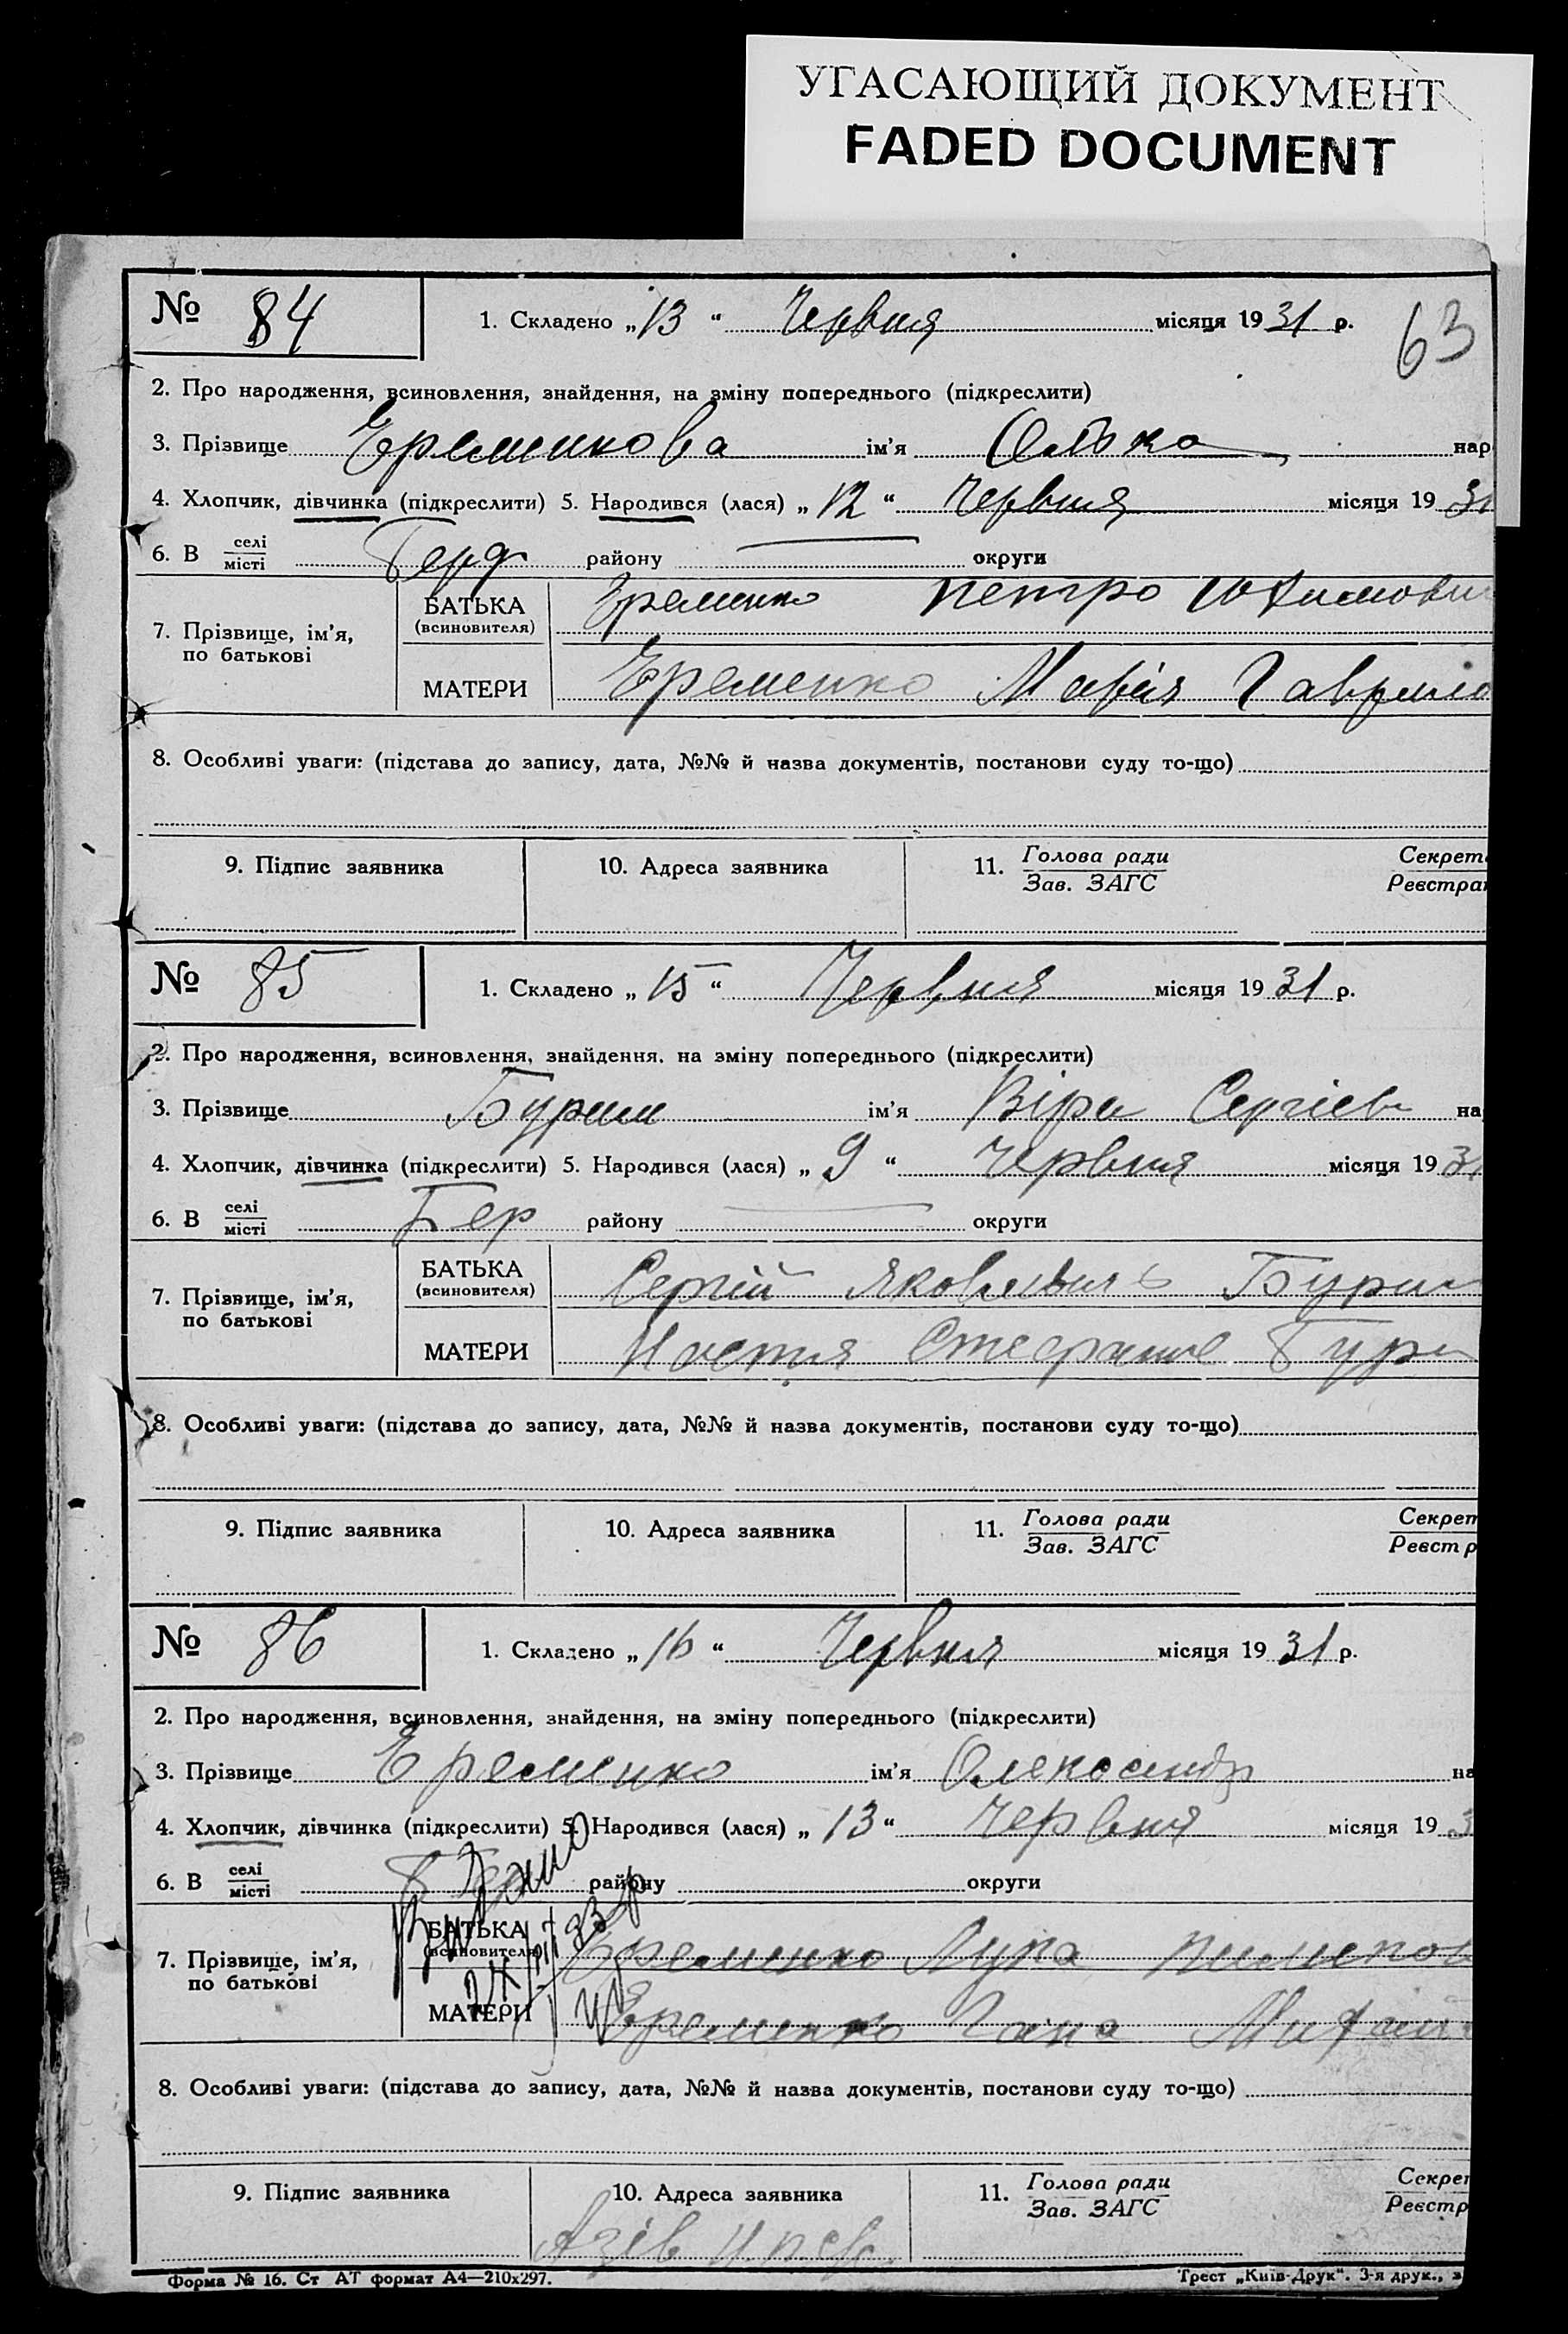 УГАСАЮЩИЙ ДОКУМЕНТ
FADED DOCUMENT
№ 84 1. Складено „13“ Червня місяця 1931 р. 63
2. Про народження, всиновлення, знайдення, на зміну попереднього (підкреслити)
3. Прізвище Еременкова ім'я Олька нар
4. Хлопчик, дівчинка (підкреслити) 5. Народився (лася) „12“ Червня місяця 1931
6. В селі місті району округи
БАТЬКА (всиновителя) Еременко Петро Юхимови
7. Прізвище, ім'я, по батькові
МАТЕРИ Еременко Марія Гаврило
8. Особливі уваги: (підстава до запису, дата, №№ й назва документів, постанови суду то-що)
9. Підпис заявника 10. Адреса заявника 11. Голова ради Зав. ЗАГС Секрет Реєстра
№ 85 1. Складено „15“ Червня місяця 1931 р.
2. Про народження, всиновлення, знайдення, на зміну попереднього (підкреслити)
3. Прізвище Бурим ім'я Віра Сергіев на
4. Хлопчик, дівчинка (підкреслити) 5. Народився (лася) „9“ Червня місяця 1931
6. В селі місті Бер району округи
БАТЬКА (всиновителя) Сергій Яковлевич Бури
7. Прізвище, ім'я, по батькові
МАТЕРИ Настя Стефан Бур
8. Особливі уваги: (підстава до запису, дата, №№ й назва документів, постанови суду то-що)
9. Підпис заявника 10. Адреса заявника 11. Голова ради Зав. ЗАГС Секрет Реєстр
№ 86 1. Складено „16“ Червня місяця 1931 р.
2. Про народження, всиновлення, знайдення, на зміну попереднього (підкреслити)
3. Прізвище Еременко ім'я Олександр на
4. Хлопчик, дівчинка (підкреслити) 5. Народився (лася) „13“ Червня місяця 193
6. В селі місті району округи
БАТЬКА (всиновителя) Еременко Лука
7. Прізвище, ім'я, по батькові
МАТЕРИ Еременко Гана Михай
8. Особливі уваги: (підстава до запису, дата, №№ й назва документів, постанови суду то-що)
9. Підпис заявника 10. Адреса заявника 11. Голова ради Зав. ЗАГС Секрет Реєстр
Азів
Форма № 16. Ст АТ формат А4—210х297. Трест „Київ-Друк“. 3-я друк., з